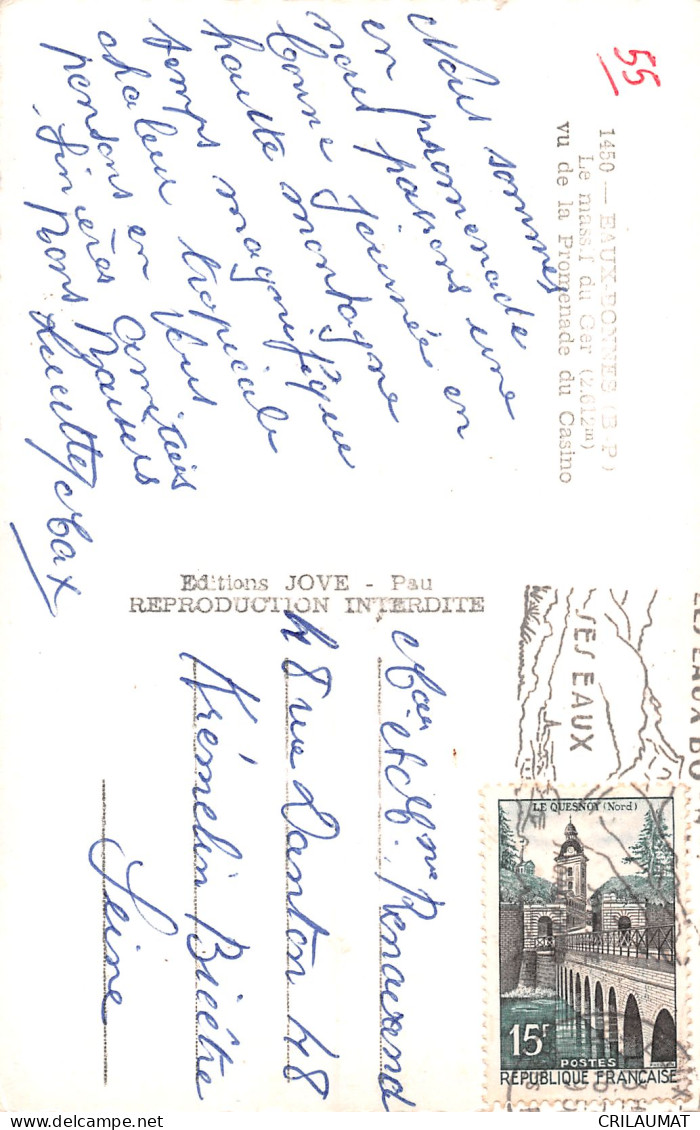 55
1450 — EAUX-BONNES (B-P)
Le massif du Ger (2.612m)
vu de la Promenade du Casino
Nous sommes
en promenade
nous passons une
bonne journée en
haute montagne
temps magnifique
chaleur tropicale
pensons en Vous
Sincères amitiés
Bons Baisers
Lucette Max
Editions JOVE - Pau
REPRODUCTION INTERDITE
et Mme Renavand
48 rue Danton 48
Krémelin Bicêtre
Seine
SES EAUX
LE QUESNOY (Nord)
15F
POSTES
RÉPUBLIQUE FRANÇAISE
CRILAUMAT